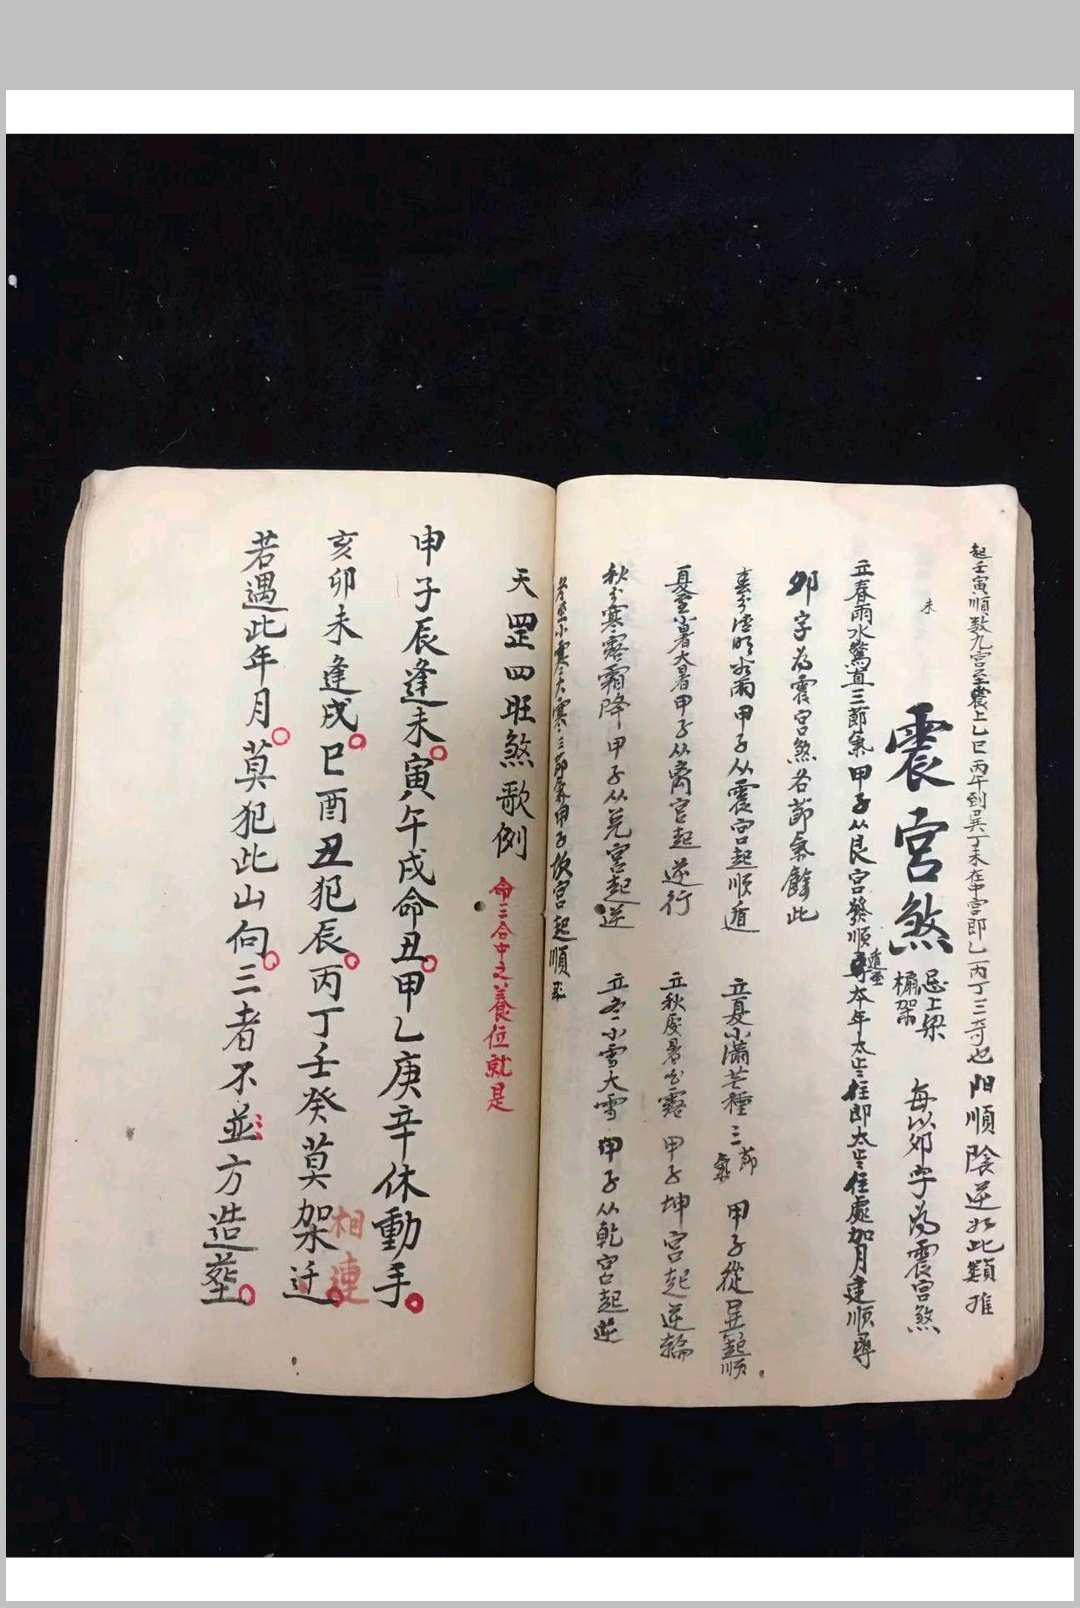 起壬寅順数九宮至震上乙巳丙午到巽丁未在中宮即乙丙丁三奇也 陽順陰逆如此類推
未
震宮煞 忌上梁
樑架
每以卯字為震宮煞
立春雨水驚直三節氣甲子从艮宮發順遁至尋本年太歲住即太歲住處加月建順尋
卯字為震宮煞各節氣餘此
春分清明谷雨甲子从震宮起順遁 立夏小滿芒種三節氣 甲子從巽起順
夏至小暑大暑甲子从离宮起逆行 立秋處暑白露 甲子坤宮起逆輪
秋分寒露霜降甲子从兌宮起逆 立冬小雪大雪 甲子从乾宮起逆
冬至小寒大寒三節氣甲子坎宮起順
天罡四旺煞歌例 命三合中之養位就是
申子辰逢未寅午戌命丑甲乙庚辛休動手
亥卯未逢戌巳酉丑犯辰丙丁壬癸莫架迁
相連
若遇此年月莫犯此山向三者不並方造葬